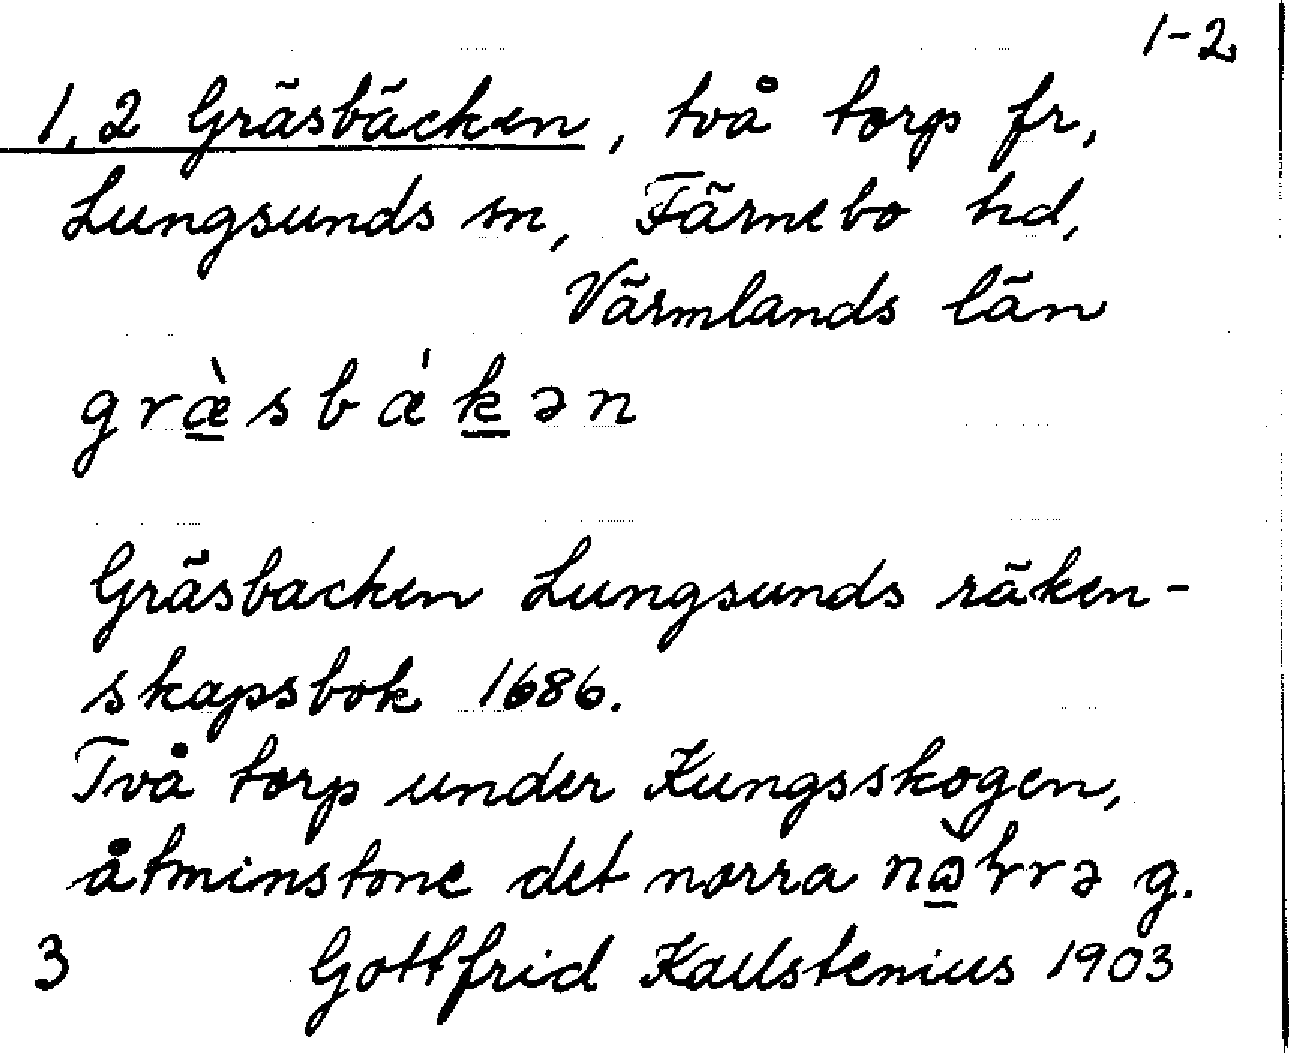 1-2
1, 2 Gräsbäcken, två torp fr,
Lungsunds sn, Färnebo hd,
Värmlands län
græ̠̀sbǽk̠ən
Gräsbacken Lungsunds räken-
skapsbok 1686.
Två torp under Kungsskogen,
åtminstone det norra g.
3 Gottfrid Kallstenius 1903